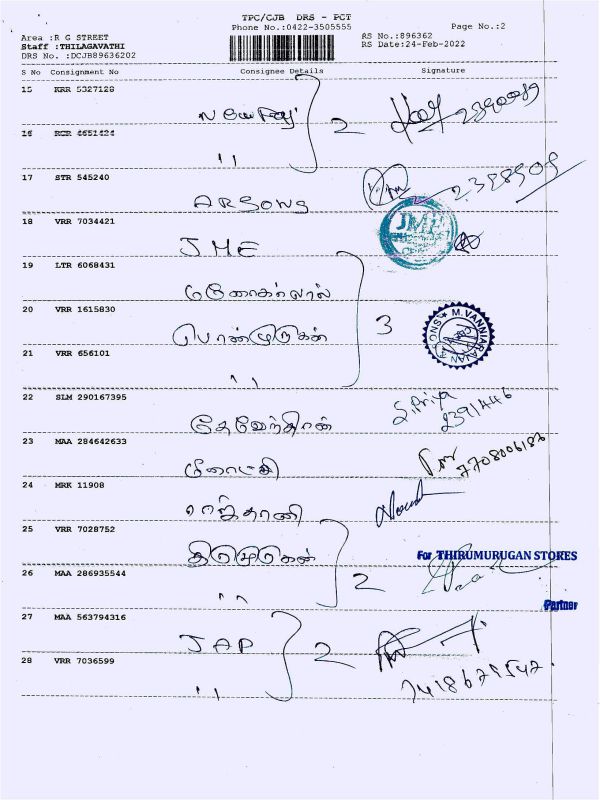 TPC/CJB DRS - PCT
Phone No.:0422-3505555
Page No.:2
Area :R G STREET
Staff :THILAGAVATHI
DRS No. :DCJB89636202
RS No.:896362
RS Date:24-Feb-2022
S No Consignment No Consignee Details Signature
15 KRR 5327128
16 RGR 4651424
,, 2
17 STR 545240
ARSONS
18 VRR 7034421
JME
JME
19 LTR 6068431
மனோகர்லால்
20 VRR 1615830
பொன்முருகன் 3
M.VANNIARAJAN & SONS
21 VRR 656101
,,
22 SLM 290167395
தேவேந்திரன்
S.Priya
23 MAA 284642633
மீனாட்சி
7708006182
24 MRK 11908
ராஜ்தானி
25 VRR 7028752
திருமுருகன்
For THIRUMURUGAN STORES
26 MAA 286935544
,, 2
Partner
27 MAA 563794316
JAP 2
28 VRR 7036599
,,